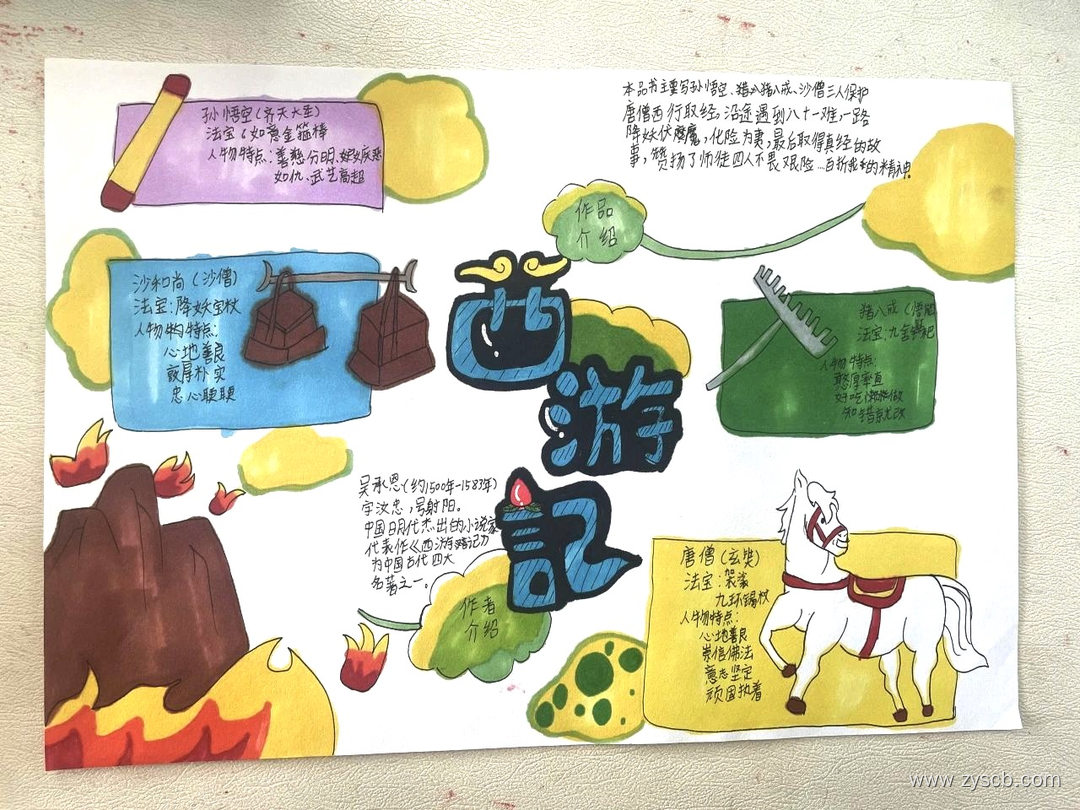 孙悟空(齐天大圣)
法宝:如意金箍棒
人物特点:善憨分明、嫉妒疾恶
如仇、武艺高超
本品书主要写孙悟空、猪八戒、沙僧三人保护
唐僧西行取经,沿途遇到八十一难,一路
降妖伏魔,化险为夷,最后取得真经的故
事,赞扬了师徒四人不畏艰险 百折 的精神。
作品
介绍
沙和尚(沙僧)
法宝:降妖宝杖
人物的特点:
心地善良
敦厚朴实
忠心耿耿
西游記
猪八戒(
法宝:九 钯
人物特点:
憨厚率直
好吃懒做
知错就改
吴承恩(约1500年-1583年)
字汝忠,号射阳。
中国明代杰出的小说家
代表作《西游记》
为中国古代四大
名著之一。
作者
介绍
唐僧(玄奘)
法宝:袈裟
九环锡杖
人物特点:
心地善良
崇信佛法
意志坚定
顽固执着
www.zyscb.com